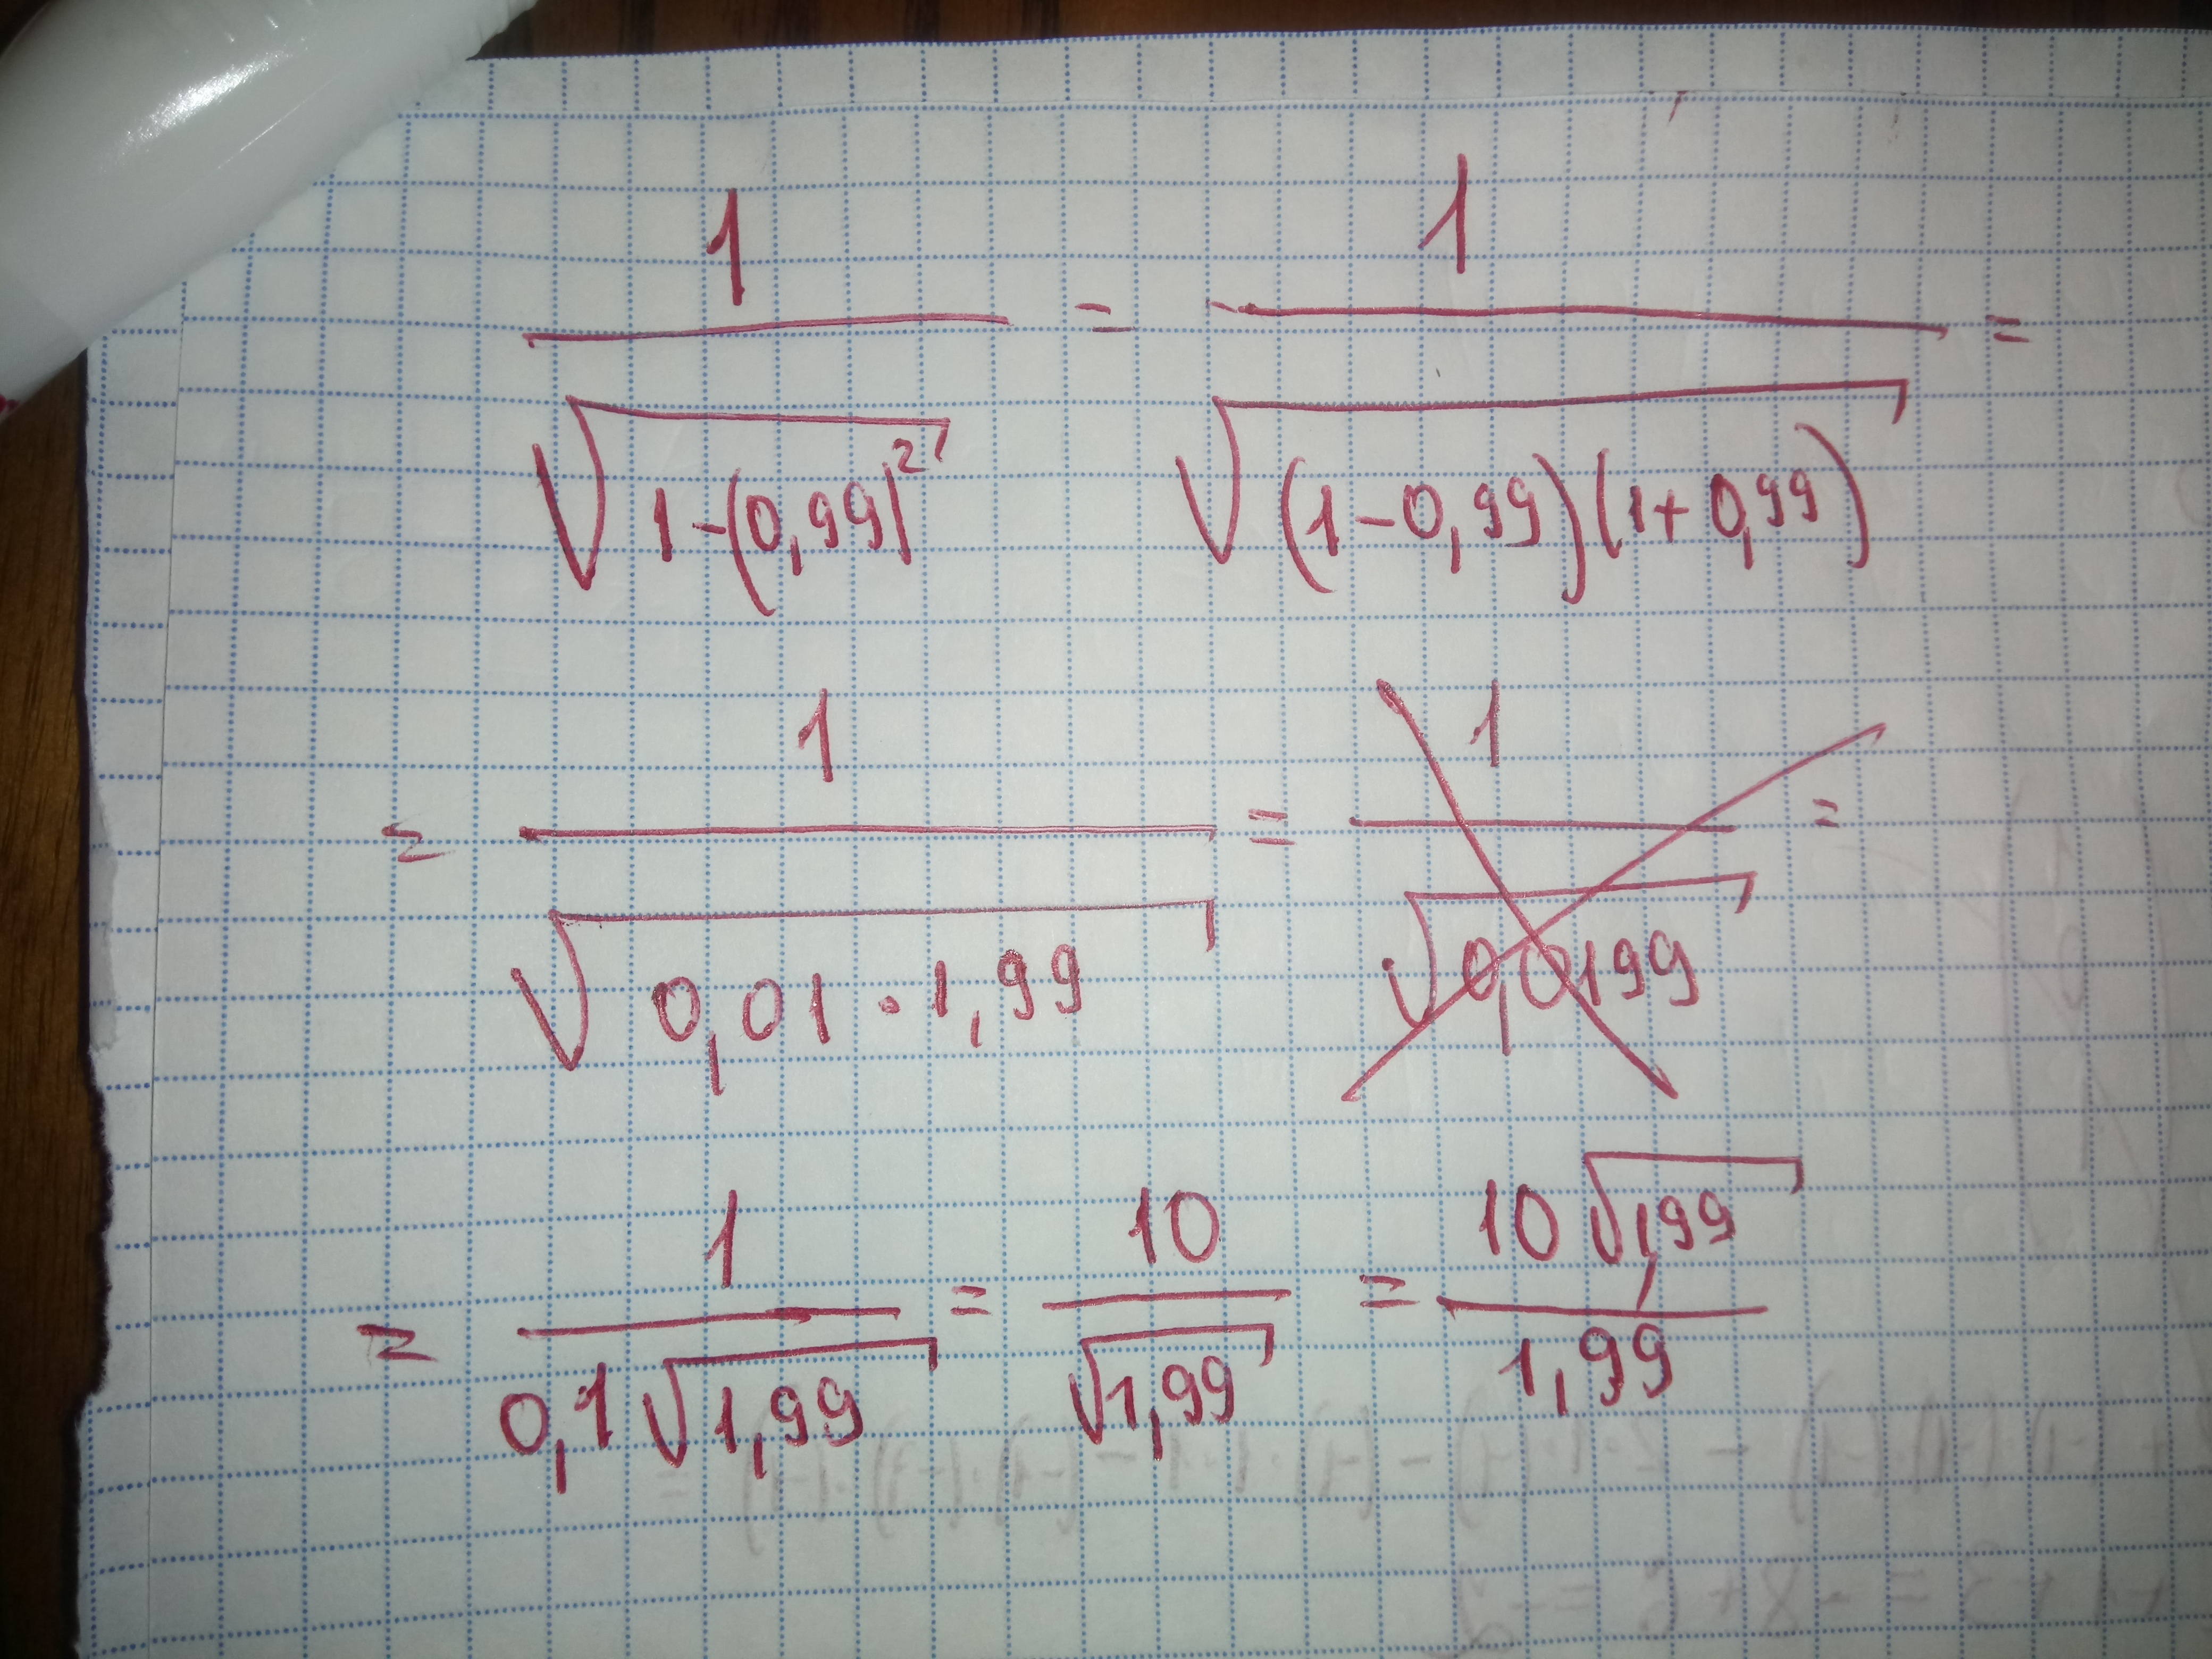 1/√(1-(0,99)²) = 1/√((1-0,99)(1+0,99)) =
= 1/√(0,01·1,99) = 1/√(0,0199) =
= 1/(0,1√1,99) = 10/√1,99 = 10√1,99/1,99